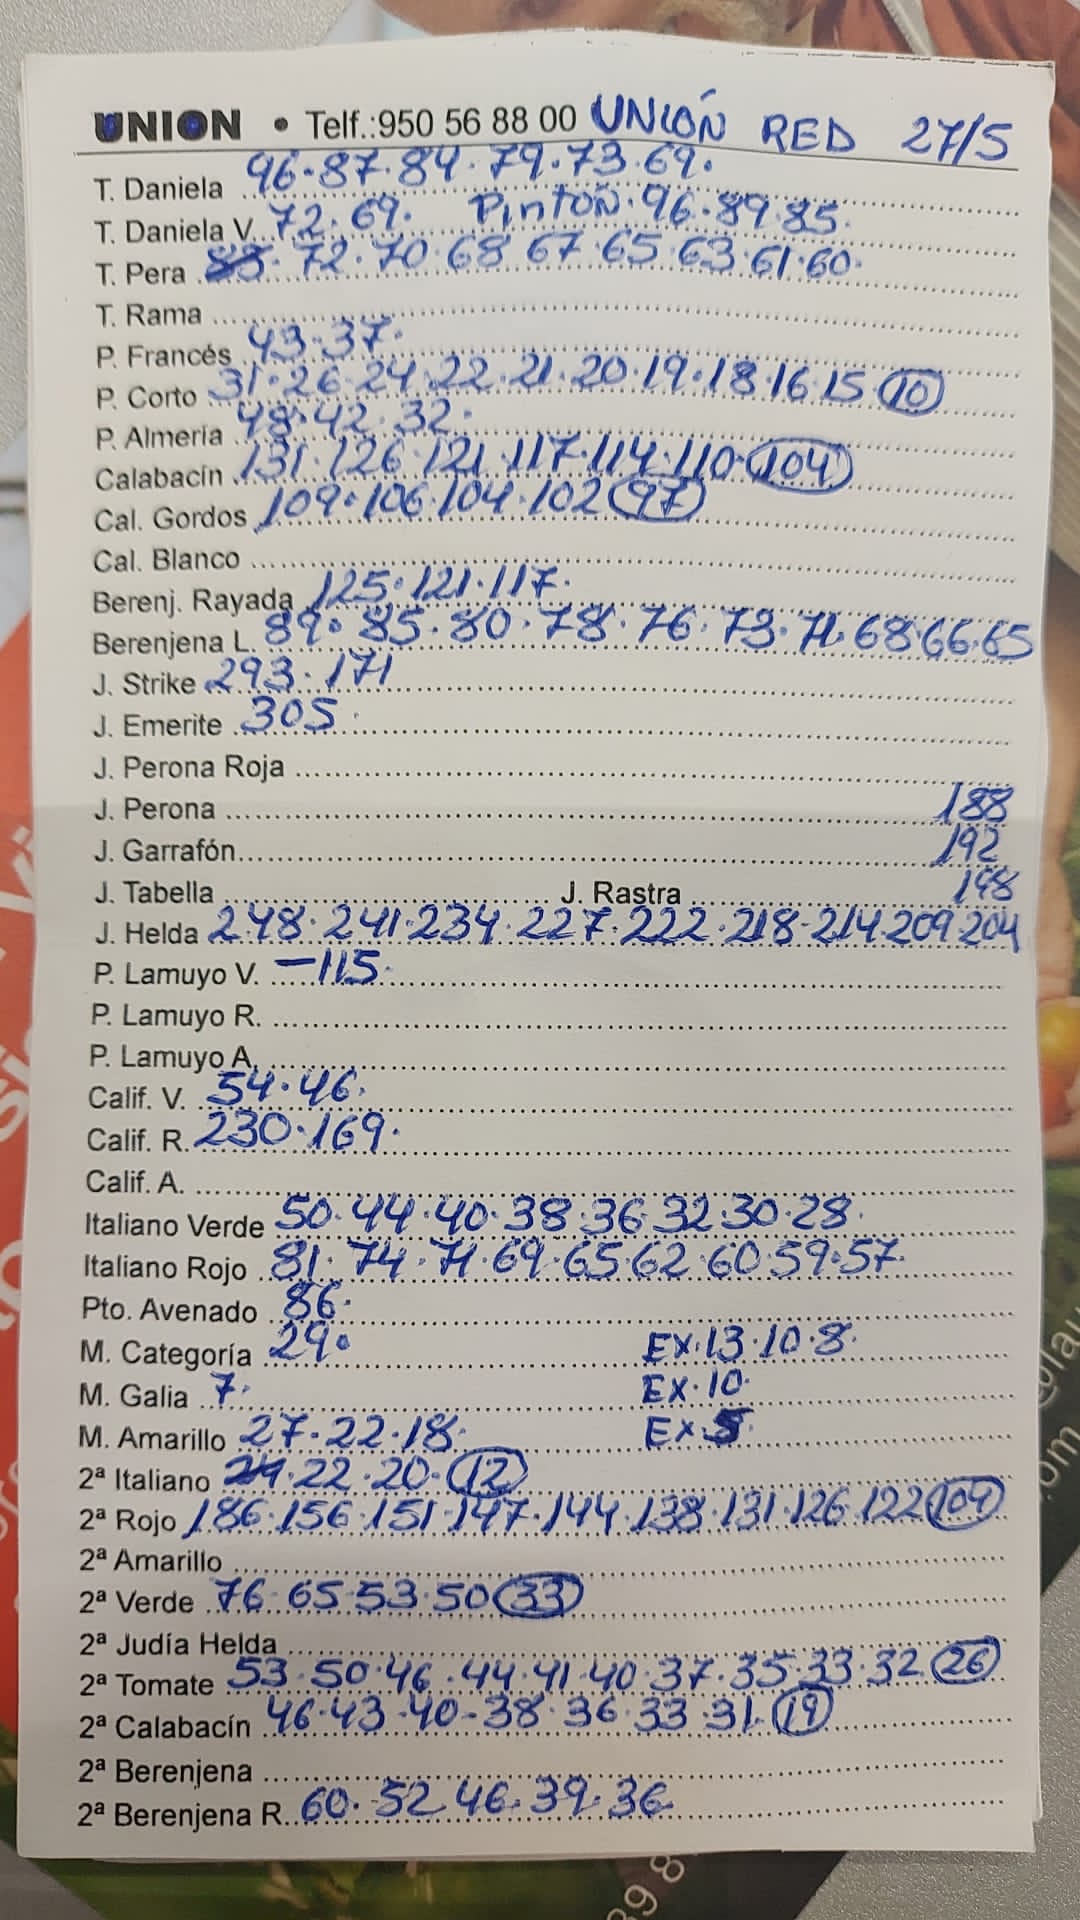 UNION • Telf.:950 56 88 00 UNIÓN RED 27/5
T. Daniela 96·87·84·79·73·69·
T. Daniela V. 72·69· Pintón·96·89·85·
T. Pera 72·70·68·67·65·63·61·60·
T. Rama
P. Francés 43·37·
P. Corto 31·26·24·22·21·20·19·18·16·15 10
P. Almería 48·42·32·
Calabacín 131·126·121·117·114·110·104
Cal. Gordos 109·106·104·102 97
Cal. Blanco
Berenj. Rayada 125·121·117·
Berenjena L. 89·85·80·78·76·73·71·68·66·65
J. Strike 293·171
J. Emerite 305·
J. Perona Roja
J. Perona 188
J. Garrafón 192
J. Tabella J. Rastra 198
J. Helda 248·241·234·227·222·218-214·209·204
P. Lamuyo V. —115·
P. Lamuyo R.
P. Lamuyo A.
Calif. V. 54·46·
Calif. R. 230·169·
Calif. A.
Italiano Verde 50·44·40·38·36·32·30·28·
Italiano Rojo 81·74·71·69·65·62·60·59·57·
Pto. Avenado 86·
M. Categoría 29· EX·13·10·8·
M. Galia 7· EX·10·
M. Amarillo 27·22·18· EX·5·
2ª Italiano 22·20·12
2ª Rojo 186·156·151·147·144·138·131·126·122 109
2ª Amarillo
2ª Verde 76·65·53·50 33
2ª Judía Helda
2ª Tomate 53·50·46·44·41·40·37·35·33·32 26
2ª Calabacín 46·43·40-38·36·33·31·19
2ª Berenjena
2ª Berenjena R. 60·52·46·39·36